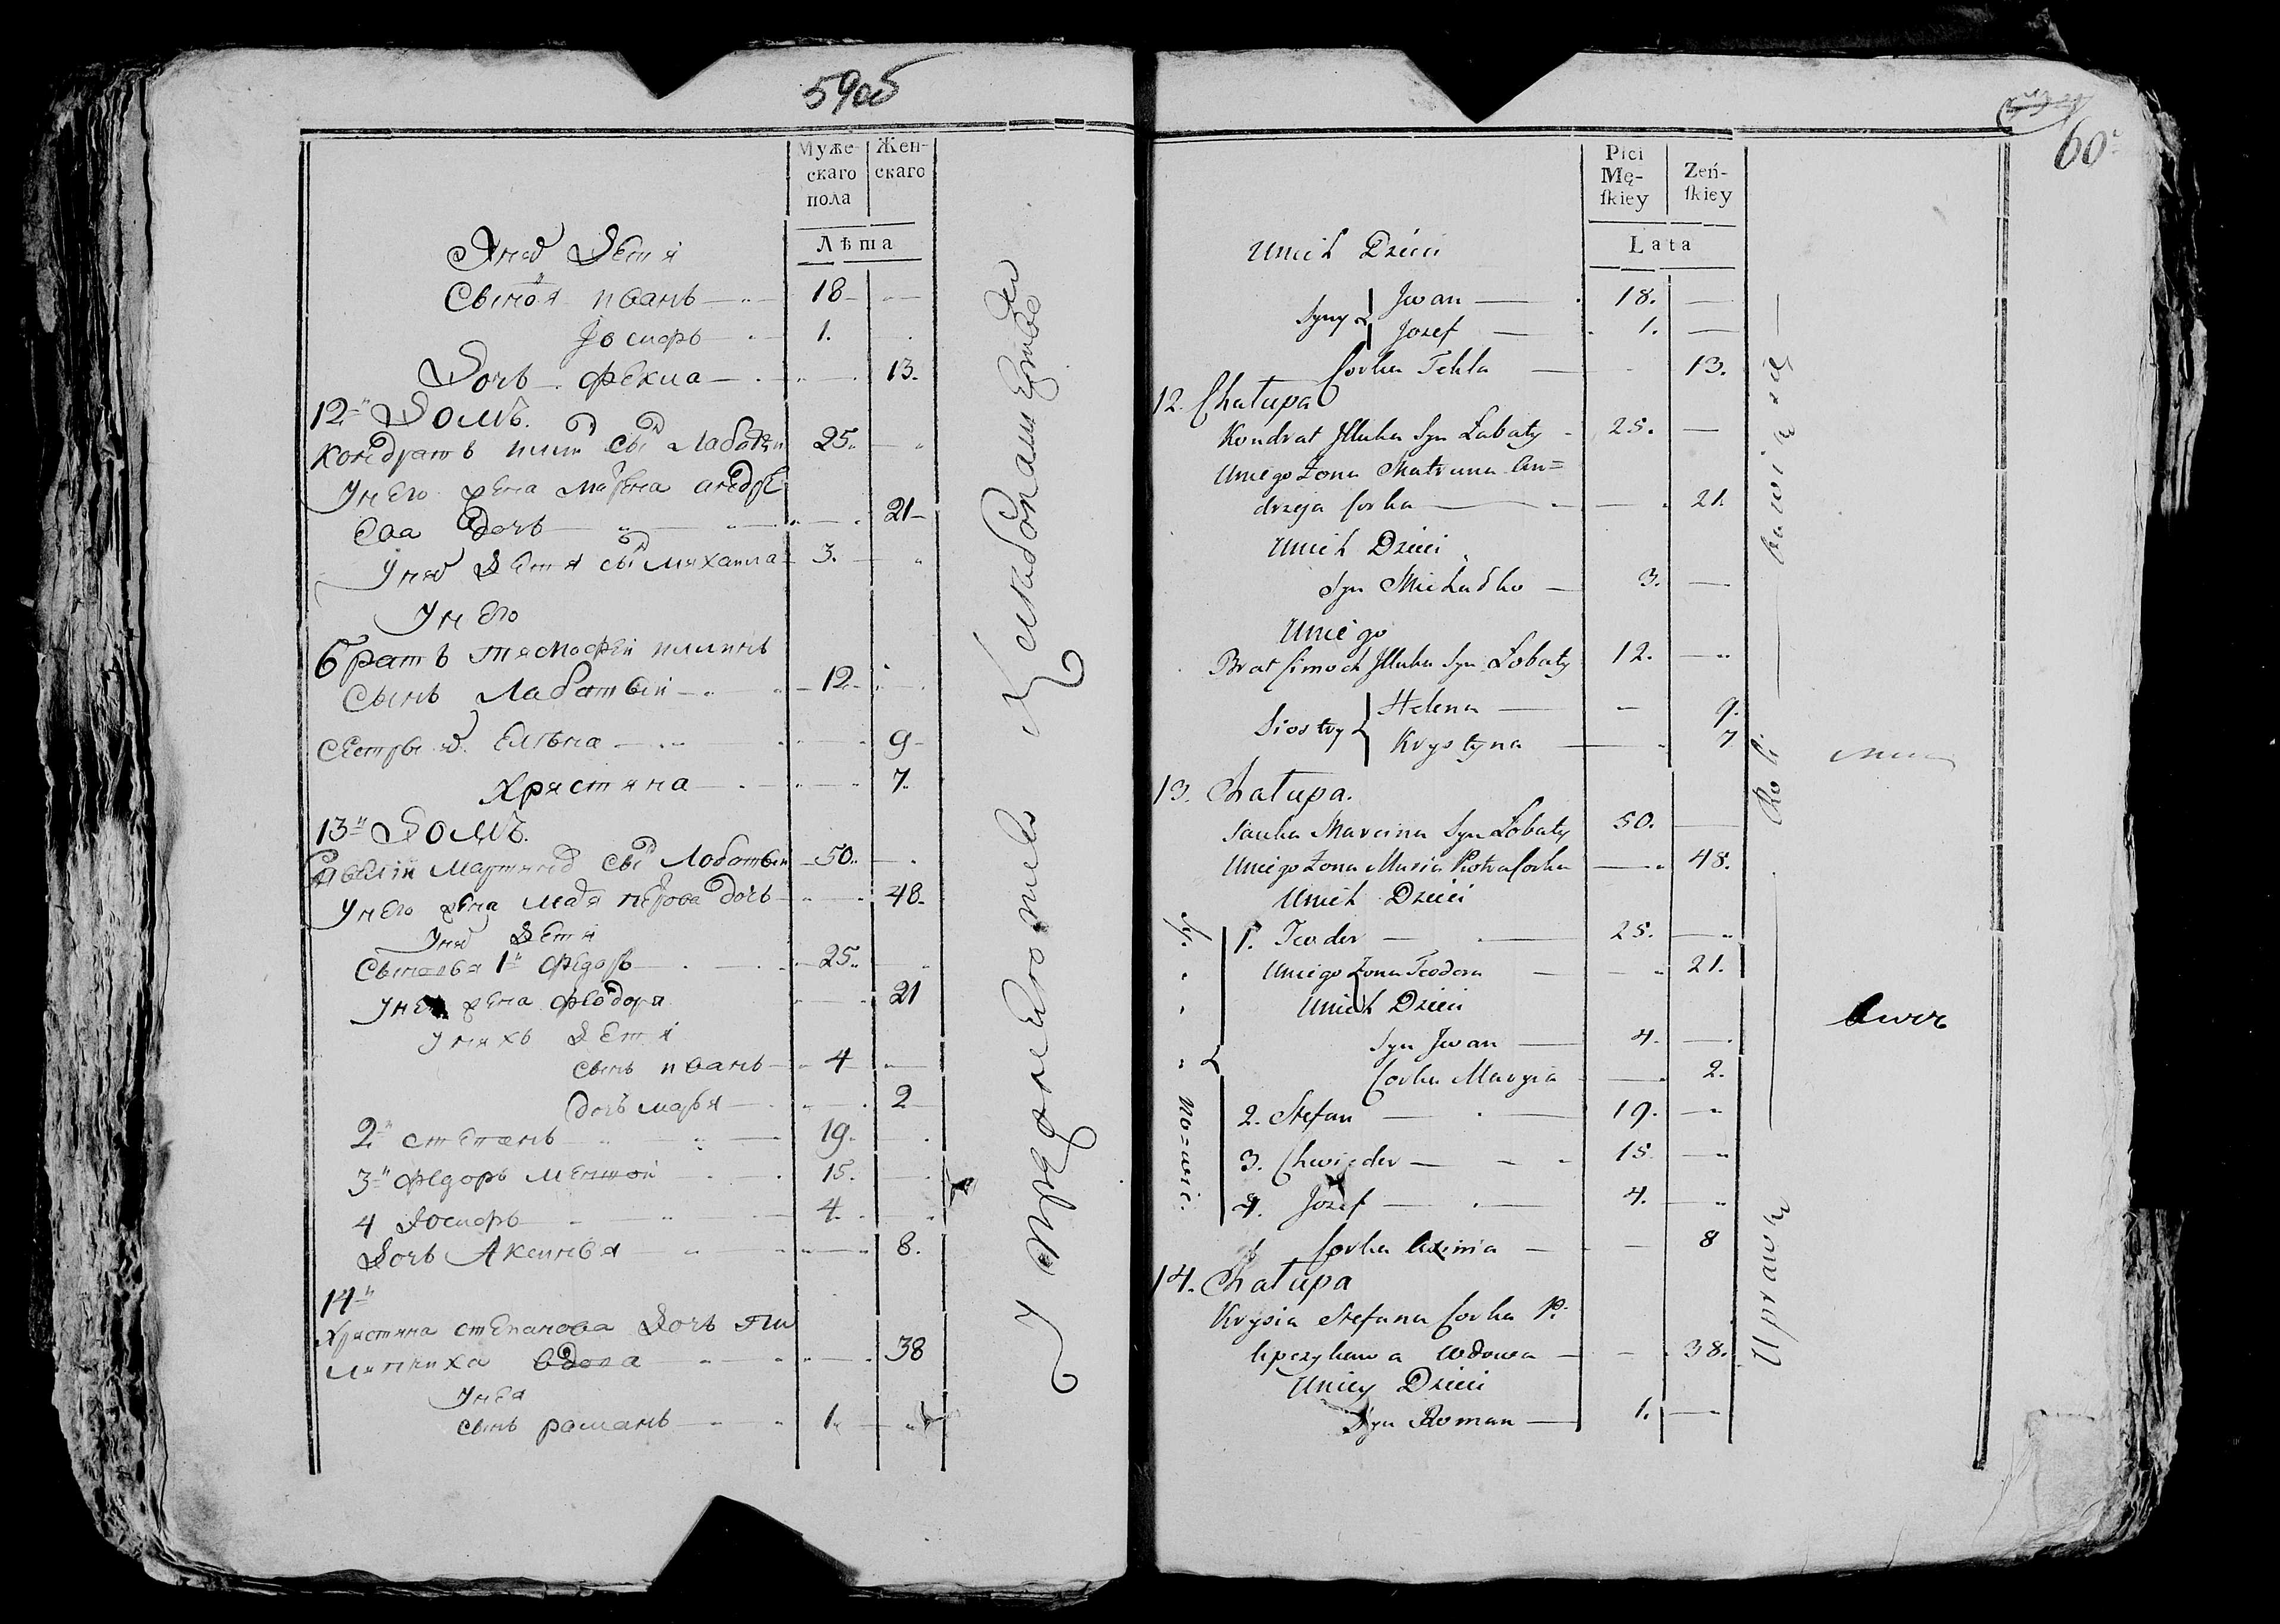 59об
Муже-
скаго
пола
Жен-
скаго
Лѣта
У них Дети
Сынов я иванъ 18
Iосифъ 1.
Дочь Фекла 13.
12-й Домъ.
Кондратъ илин сын Лабатый 25.
У него жена Матрена андре
ева дочь 21
У них Дети сын михаила 3.
У него
братъ тимофей илинъ
Сынъ Лабатый 12
Сестры Елѣна 9
Христина 7.
13-й Домъ.
Мартинов сын Лобатый 50.
У него жена петрова дочь 48.
У них Дети
Сыновья 1-й Федоръ 25.
жена Феодора 21
У нихъ Дети
сынъ иванъ 4
дочь марья 2
2-й степанъ 19.
3-й Федоръ меншой 15.
4 Iосифъ 4.
Дочь Аксинья 8.
14-й
Христина степанова Дочь Пи
вдова 38
У нея
сынъ романъ 1.
60
Płci
Mę-
ſkiey
Żeń-
ſkiey
Lata
Unich Dzieci
Syny { Jwan 18.
Jozef 1.
Corka Tekla 13.
12. Chałupa
Kondrat Illuka Syn Łabaty 25.
Uniego Żona Matruna An=
drzeja Corka 21.
Unich Dzieci
Syn Michałko 3.
Uniego
Brat Cimoch Illuka Syn Łobaty 12.
Siostry { Helena 9.
Krystyna 7
13. Chałupa.
Sauka Marcina Syn Łobaty 50.
Uniego Żona Maria Piotra Corka 48.
Unich Dzieci
1. Teoder 25.
Uniego Żona Teodora 21.
Unich Dzieci
Syn Jwan 4.
Corka Maryia 2.
Sy. no=wie.
2. Stefan 19.
3. Chwieder 15
4. Jozef 4.
Corka Axinia 8
14. Chałupa
Krysia Stefana Corka Pi
lipczykowa Wdowa 38.
Uniey Dzieci
Syn Roman 1.
Uprawą Roli bawią się